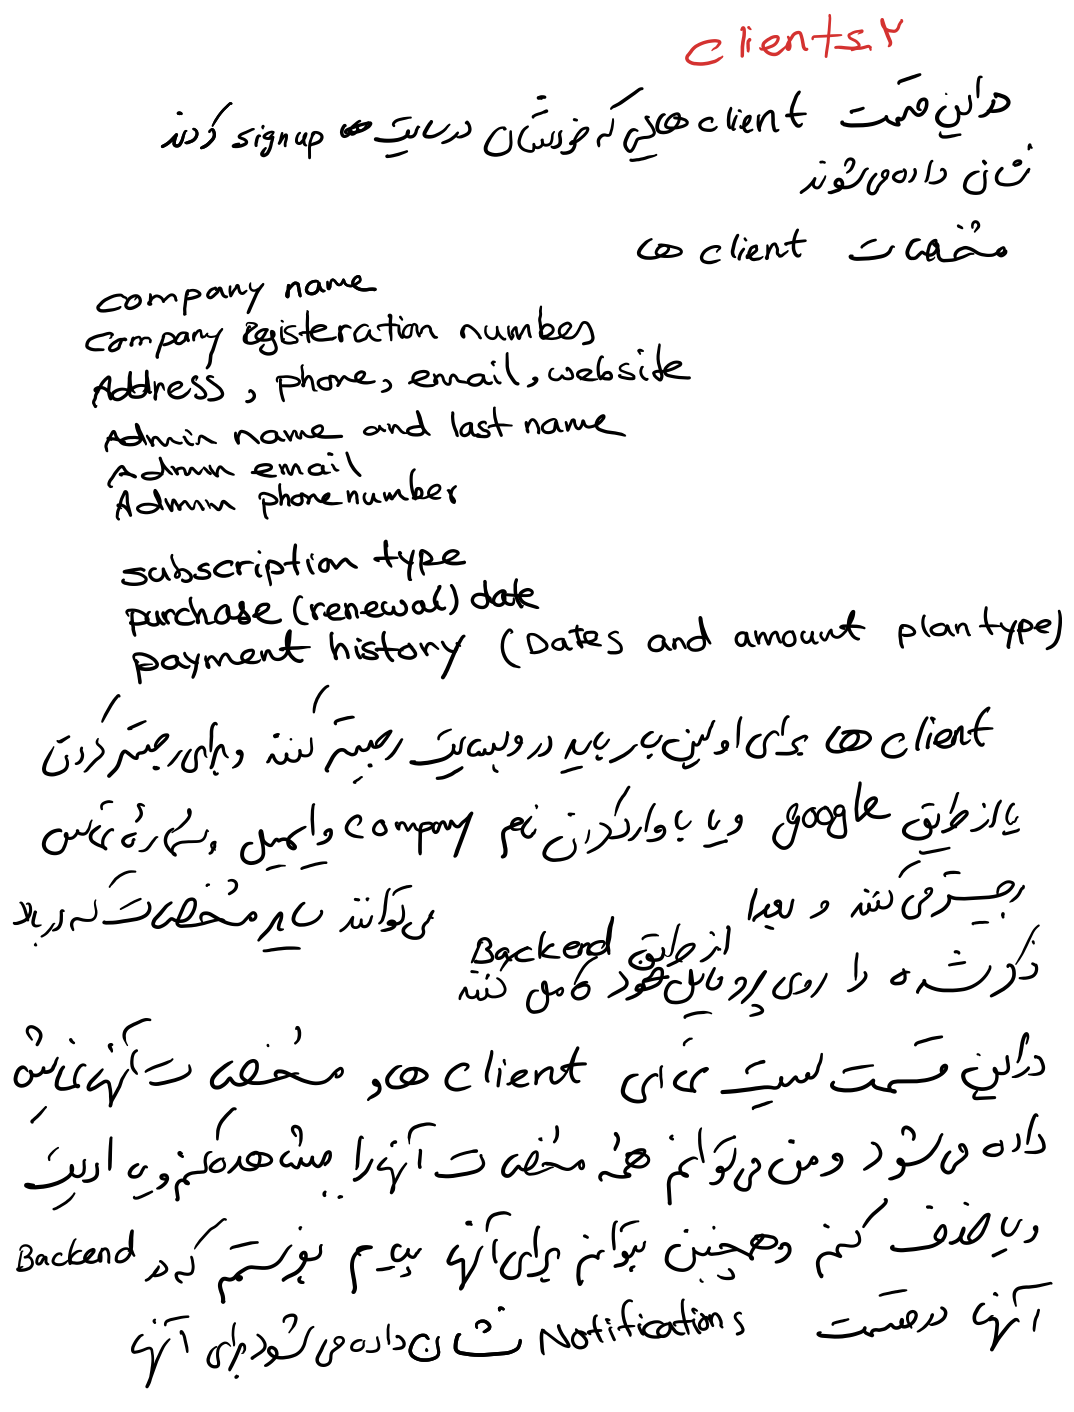 ۲ـ clients
در این قسمت client هایی که خودشان در سایت signup کردند
نشان داده می‌شوند
مشخصات client ها
company name
Company Registeration number
Address, phone, email, website
Admin name and last name
Admin email
Admin phone number
subscription type
purchase (renewal) date
payment history (Dates and amount plan type)
client ها برای اولین بار باید در وبسایت رجیستر کنند و برای رجیستر کردن
یا از طریق google و یا با وارد کردن نام company و ایمیل و شماره تماس
رجیستر می کنند و بعدا از طریق Backend می توانند سایر مشخصات که در بالا
ذکر شده را روی پروفایل خود کامل کنند
در این قسمت لیست تمامی client ها و مشخصات آنها نمایش
داده می شود و من می توانم همه مشخصات آنها را مشاهده کنم و یا ادیت
و یا حذف کنم و همچنین بتوانم برای آنها پیام بفرستم که در Backend
آنها در قسمت Notifications نشان داده می شود برای آنها